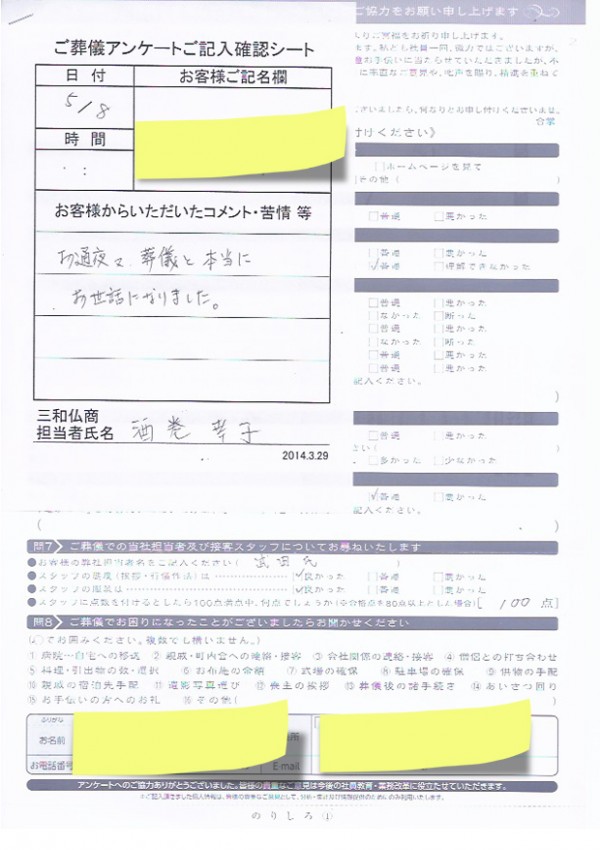 ご協力をお願い申し上げます
ご葬儀アンケートご記入確認シート
日 付
お客様ご記名欄
5/8
時 間
:
お客様からいただいたコメント・苦情 等
お通夜と、葬儀と本当に
お世話になりました。
三和仏商
担当者氏名 酒巻 幸子
2014.3.29
合掌
付けください》
□ホームページを見て
その他 (
□普通 □悪かった
□普通 □悪かった
☑普通 □理解できなかった
□普通 □悪かった
□なかった □断った
□普通 □悪かった
□なかった □断った
□普通 □悪かった
□普通 □悪かった
記入ください。
□普通 □悪かった
□多かった □少なかった
☑普通 □悪かった
記入ください。
問7 ご葬儀での当社担当者及び接客スタッフについてお尋ねいたします
●お客様の弊社担当者名をご記入ください ( 武田氏 )
●スタッフの態度(挨拶・行儀作法)は ☑良かった □普通 □悪かった
●スタッフの服装は ☑良かった □普通 □悪かった
●スタッフに点数を付けるとしたら100点満点中、何点でしょうか(※合格点を80点以上とした場合) [ 100 点]
問8 ご葬儀でお困りになったことがございましたらお聞かせください
(○でお囲みください。複数でも構いません。)
①病院…自宅への移送 ②親戚・町内会への連絡・接客 ③会社関係の連絡・接客 ④僧侶との打ち合わせ
⑤料理・引出物の数・選択 ⑥お布施の金額 ⑦式場の確保 ⑧駐車場の確保 ⑨供物の手配
⑩親戚の宿泊先手配 ⑪遺影写真選び ⑫喪主の挨拶 ⑬葬儀後の諸手続き ⑭あいさつ回り
⑮お手伝いの方へのお礼 ⑯その他 ( )
ふりがな
お名前
お電話番号
E-mail
アンケートへのご協力ありがとうございました。皆様の貴重なご意見は今後の社員教育・業務改革に役立たせていただきます。
のりしろ ①